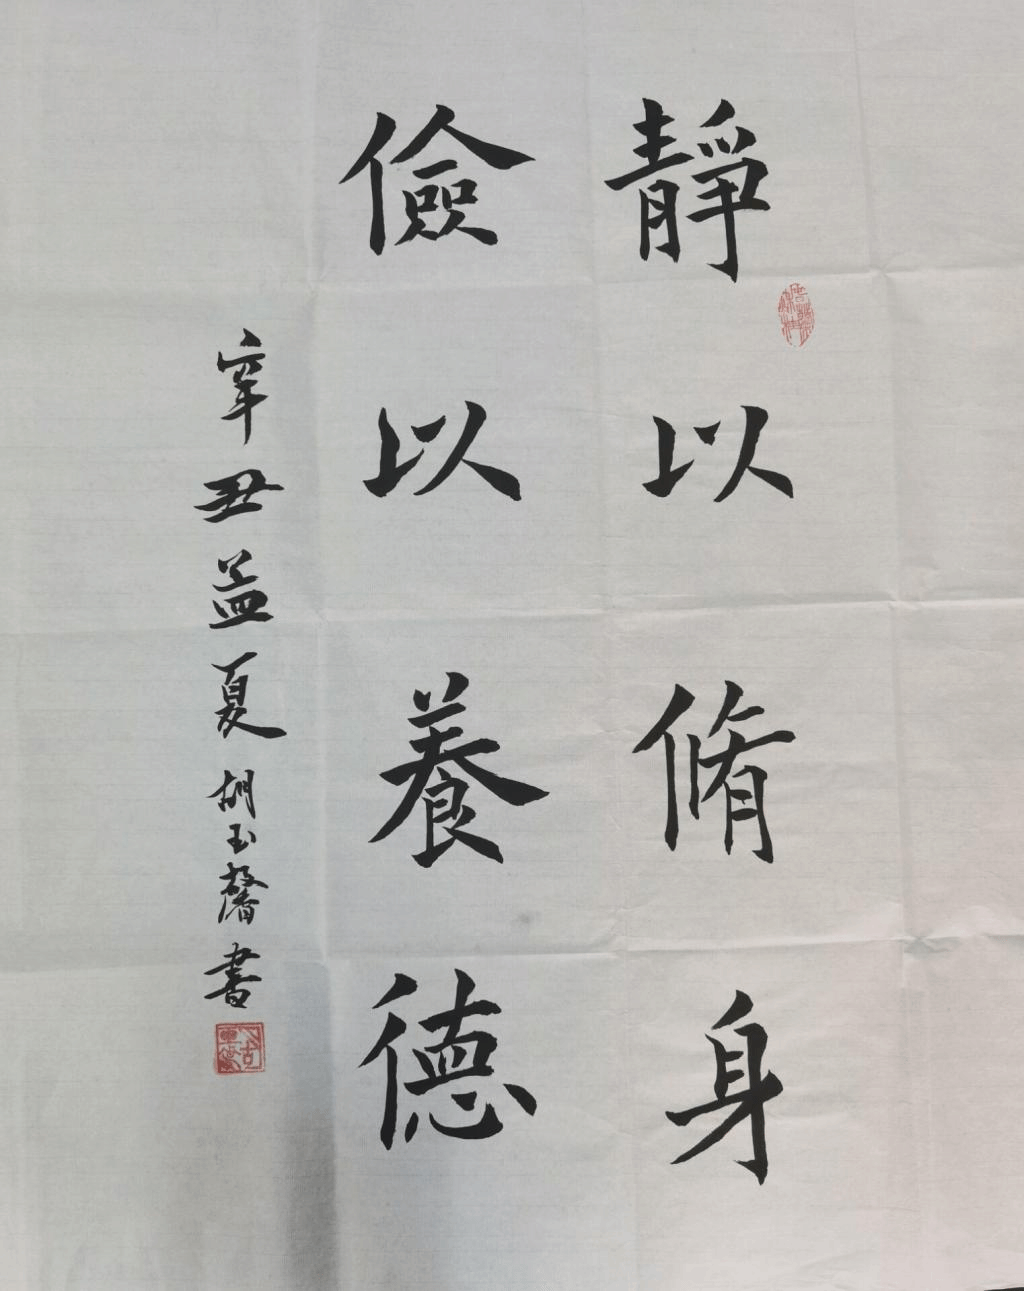 靜以脩身
儉以養德
辛丑孟夏胡玉馨書